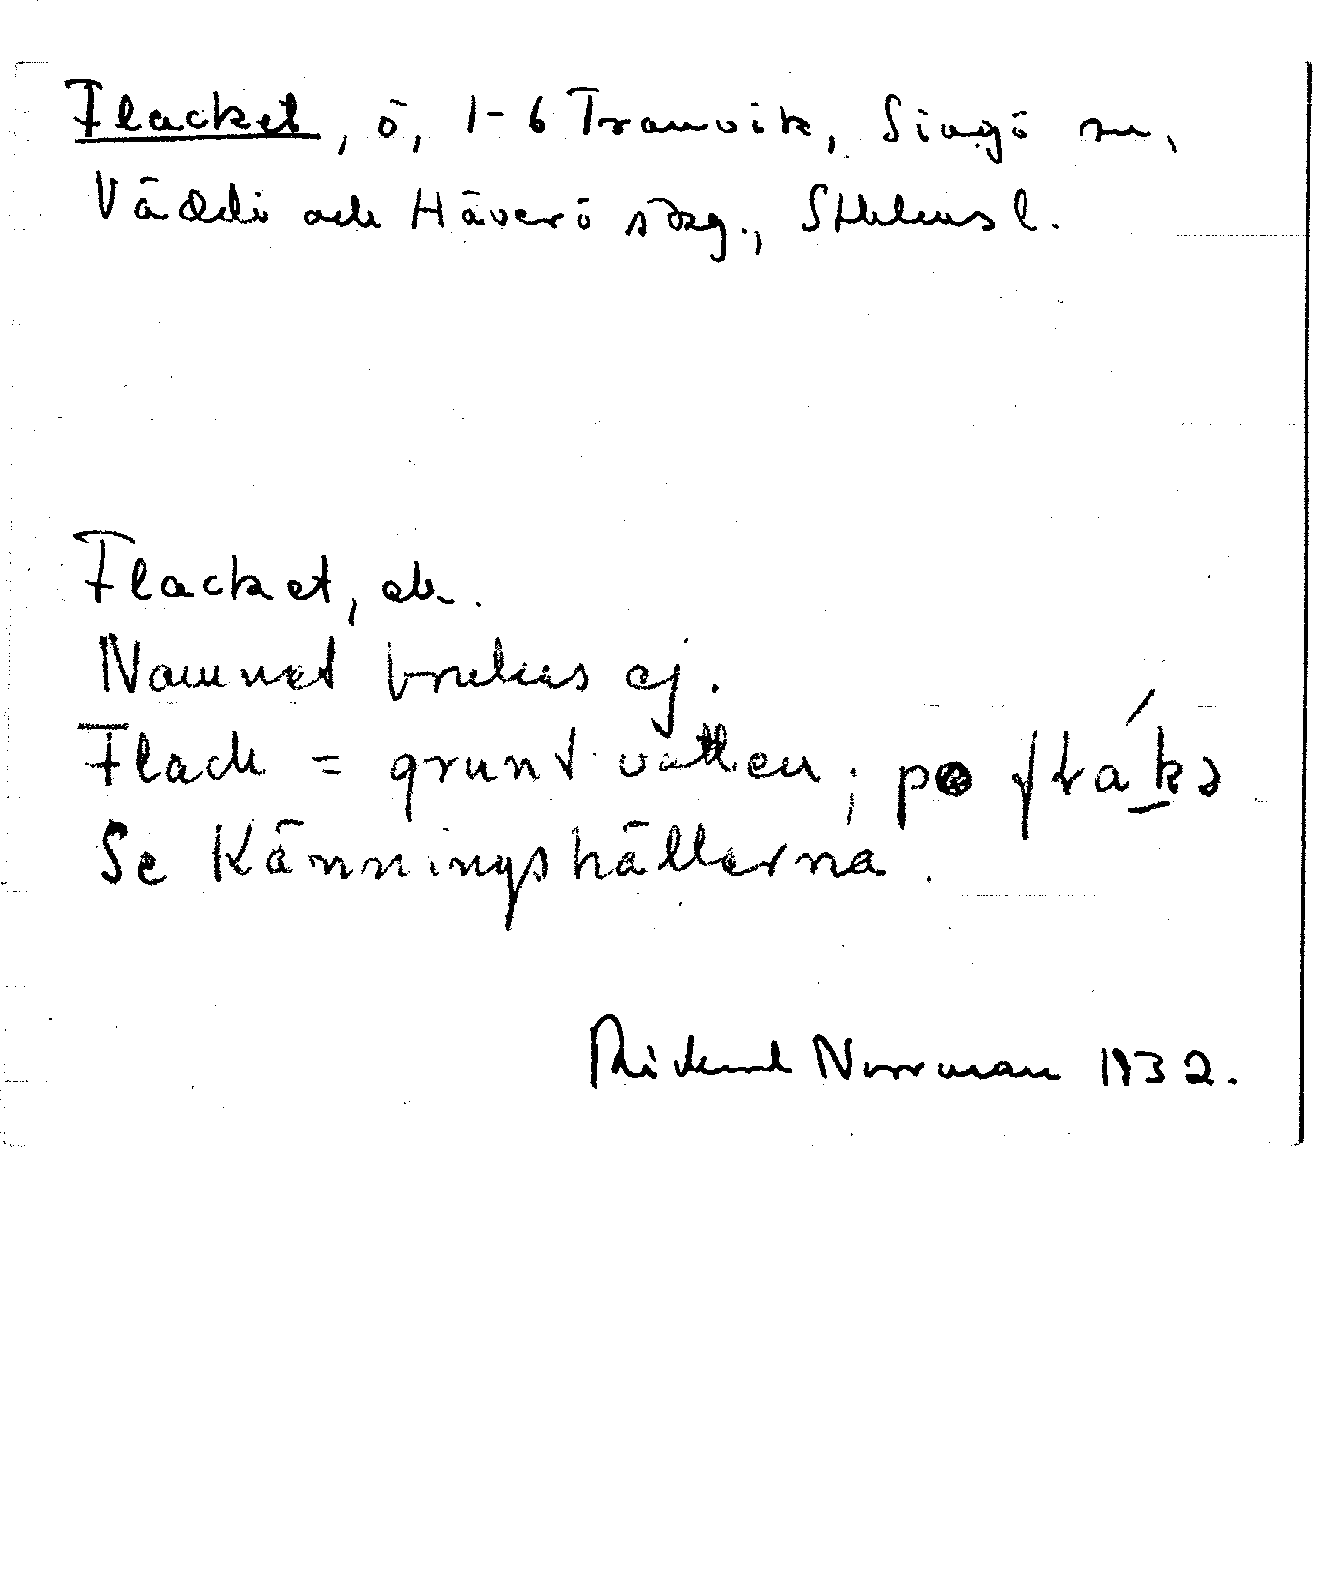 Flacket, ö, 1-6 Tranvik, Singö sn,
Väddö och Häverö skg., Sthlms l.
Flacket, ek.
Namnet brukas ej.
Flack = grunt vatten; på flakə
Se Känningshällarna.
Rickard Norrman 1932.